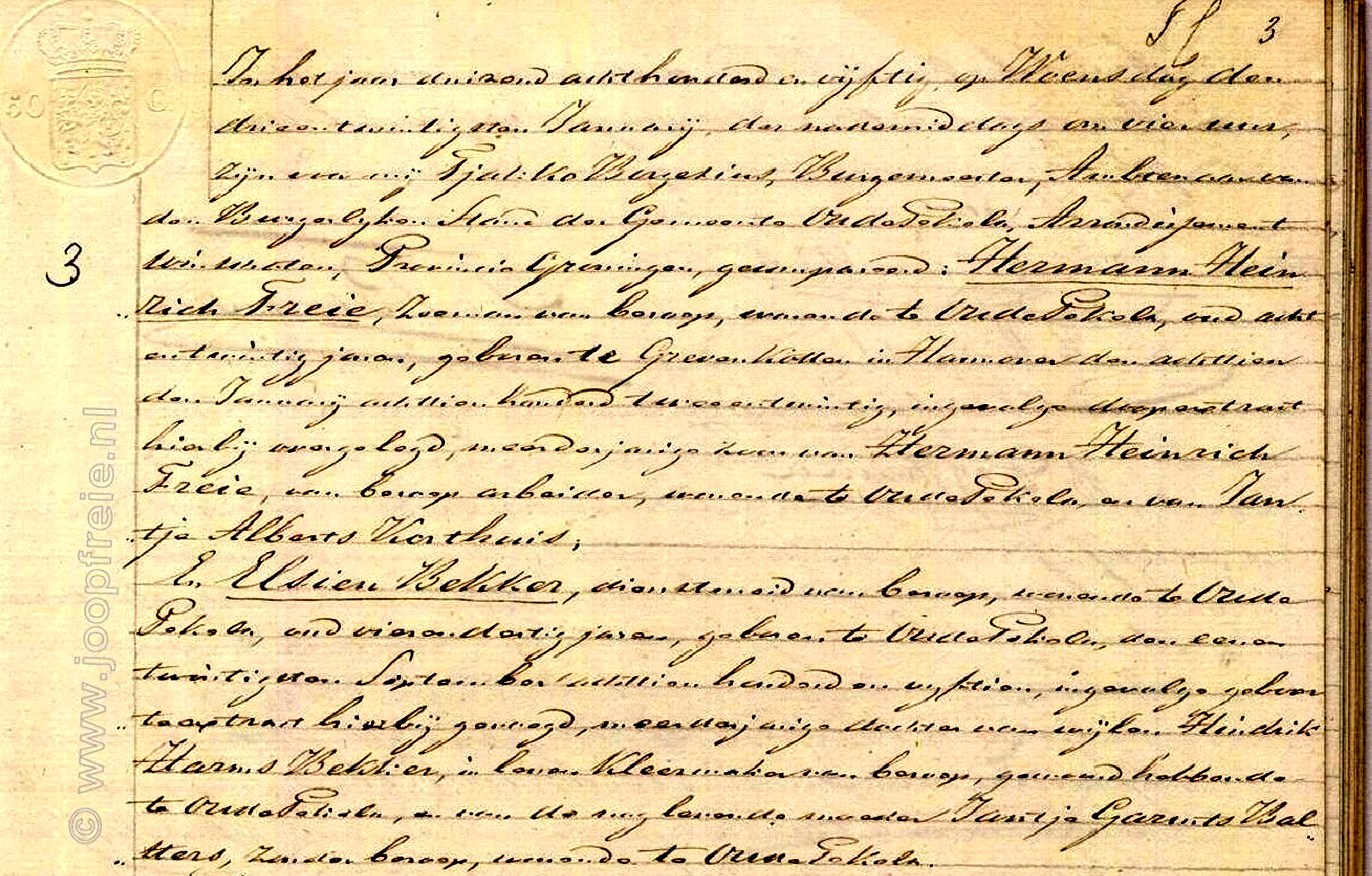 3
In het jaar duizend achthonderd en vijftig, op Woensdag den
drieentwintigsten Januarij, des nademiddags om vier uur,
zijn voor mij Tjakko Borgesius, Burgemeester, Ambtenaar van
den Burgerlyken Stand der Gemeente Oude Pekela, Arrondissement
Winschoten, Provincie Groningen, gecompareerd: Hermann Hein
3
"rich Freie, Zeeman van beroep, wonende te Oude Pekela, oud acht
entwintig jaren, geboren te Grevenkotten in Hannover den achttien
den Januarij achttien honderd tweeentwintig, ingevolge doopextract
hierbij overgelegd, meerderjarige zoon van Hermann Heinrich
Freie, van beroep arbeider, wonende te Oude Pekela, en van Jan
"tje Alberts Korthuis;
En Elsien Bekker, dienstmeid van beroep, wonende te Oude
Pekela, oud vierendertig jaren, geboren te Oude Pekela, den eenen
twintigsten September achttien honderd en vyftien, ingevolge geboor
"teextract hierbij gevoegd, meerderjarige dochter van wijlen Hindrik
Harms Bekker, in leven Kleermaker van beroep, gewoond hebbende
te Oude Pekela, en van de nog levende moeder Jantje Garmts Bal
"ters, zonder beroep, wonende te Oude Pekela.
50 C
© www.joopfreie.nl